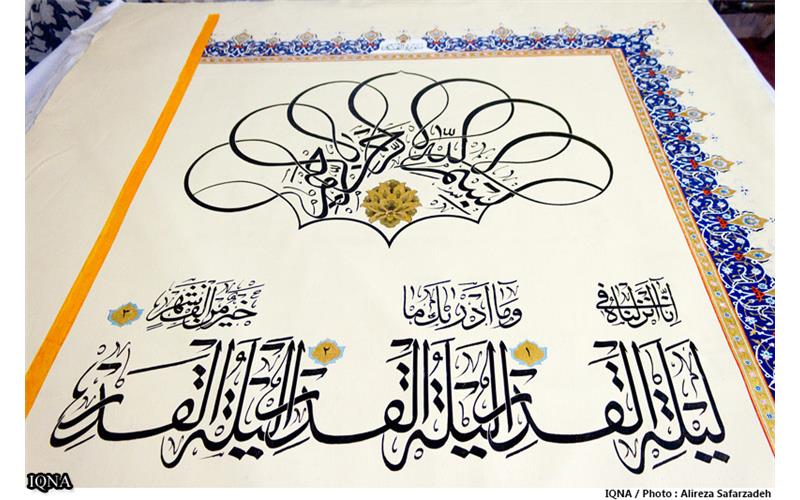 بسم الله الرحمن الرحيم
إِنَّا أَنْزَلْنَاهُ فِي وَمَا أَدْرَیٰكَ مَا خَيْرٌ مِنْ أَلْفِ شَهْرٍ ٣
لَيْلَةِ الْقَدْرِ ١ لَيْلَةُ الْقَدْرِ ٢ لَيْلَةُ الْقَدْرِ
IQNA
IQNA / Photo : Alireza Safarzadeh